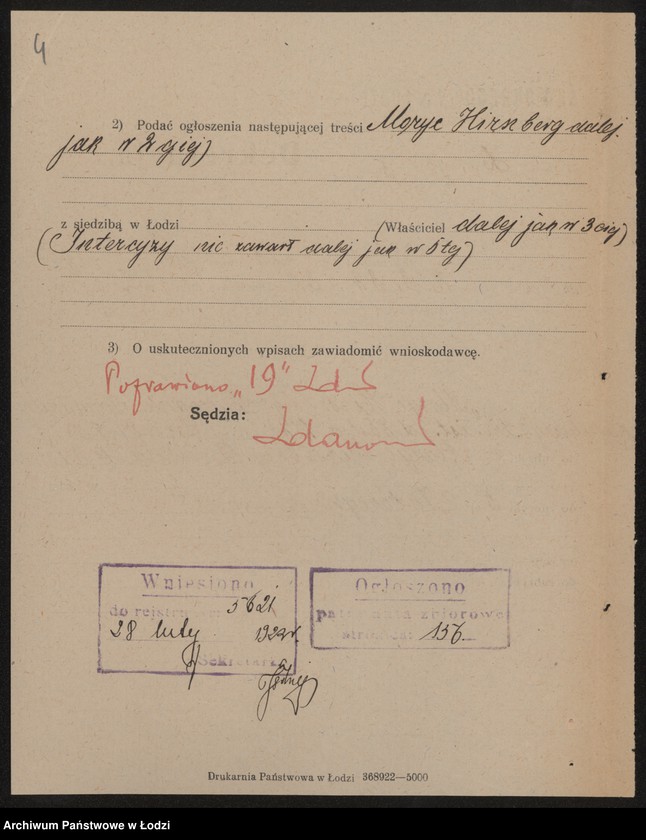 4
2) Podać ogłoszenia następującej treści Moryc Hirszberg dalej
jak w 2 giej)
z siedzibą w Łodzi (Właściciel dalej jak w 3 ciej)
(Intercyzy nie zawarł dalej jak w 5 tej)
3) O uskutecznionych wpisach zawiadomić wnioskodawcę.
Poprawiono „19”
Sędzia:
Wniesiono
do rejestru 5621
28 luty 1922 r.
Sekretarz
Ogłoszono
patrz akta zbiorowe
stronica: 156.
Drukarnia Państwowa w Łodzi 368922—5000
Archiwum Państwowe w Łodzi